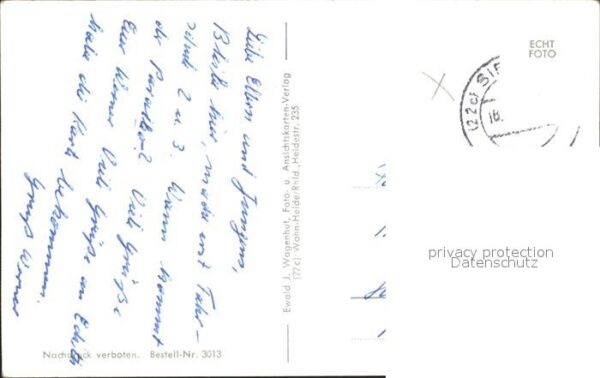 Liebe Eltern und Jungens,
Bleibe hier, mache erst Fahr-
2 u. 3. Wann kommt
der Paradko? Viele Grüße
Euer Werner Viele Grüße an Edith
habe die Karte bekommen.
Gruß Werner
Ewald J. Wagenhut, Foto- u. Ansichtskarten-Verlag
(22c) Wahn-Heide/Rhld., Heidestr. 235
Nachdruck verboten. Bestell-Nr. 3013
ECHT
FOTO
(22c) SIE
18.
privacy protection
Datenschutz